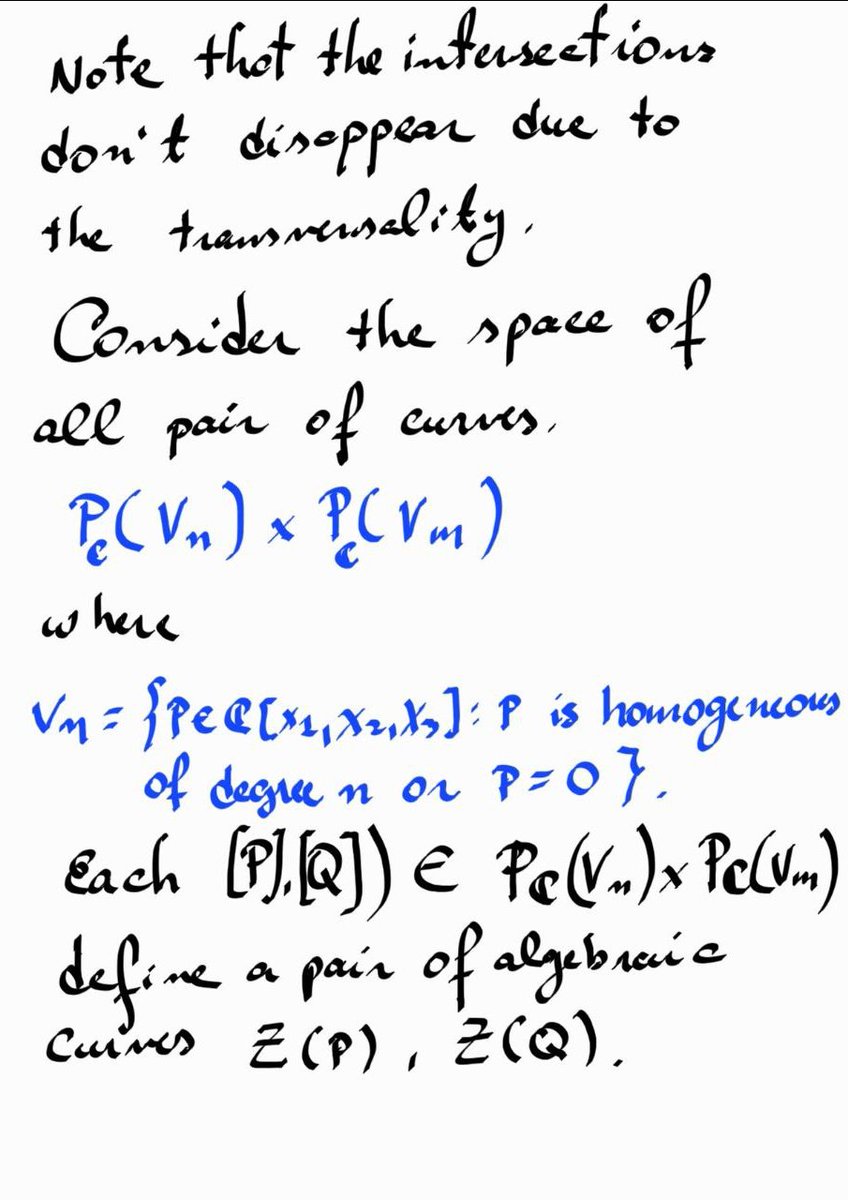 Note that the intersections
don't disappear due to
the transversality.
Consider the space of
all pair of curves.
P_C(V_n) x P_C(V_m)
where
V_n = {P∈C[x_1,x_2,x_3]: P is homogeneous
of degree n or P=0}.
Each [P],[Q]) ∈ P_C(V_n) x P_C(V_m)
define a pair of algebraic
curves Z(P), Z(Q).